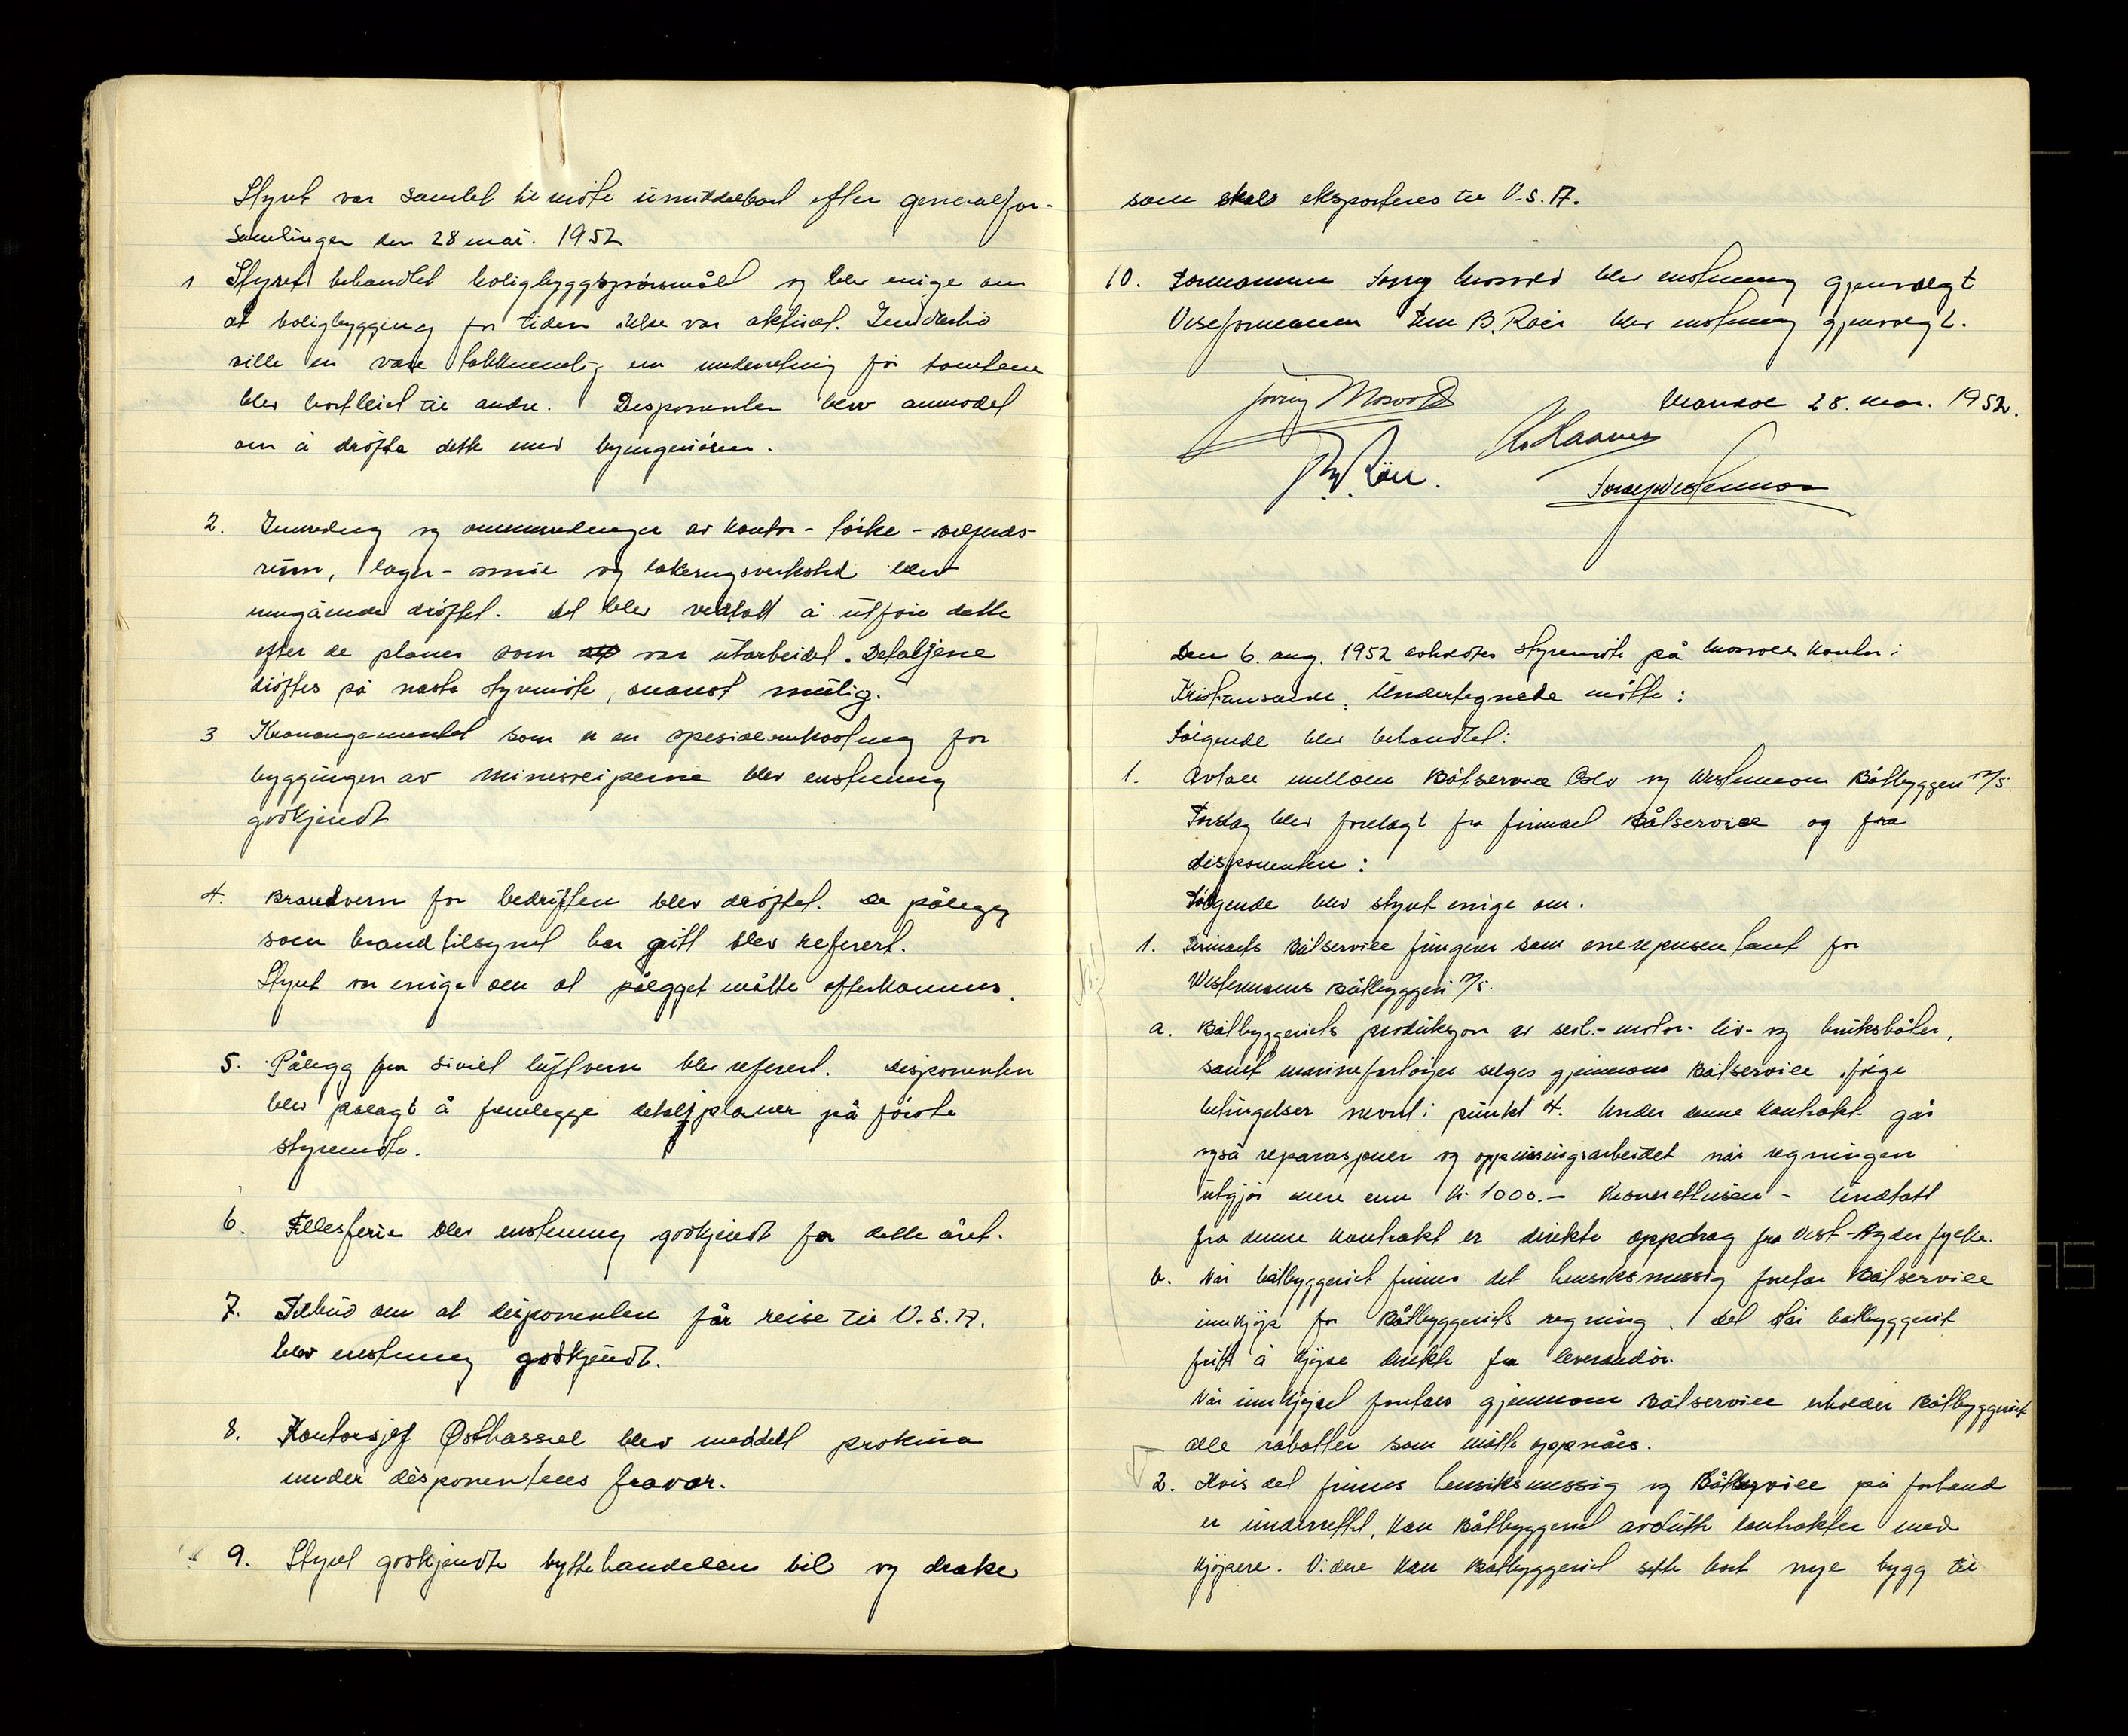 Styret var samlet til møte umiddelbart efter generalfor-
samlingen den 28 mai. 1952
1 Styret behandlet boligbyggspørsmålet og blev enige om
at boligbygging for tiden ikke var aktuel. Imidlertid
ville en være takknemlig om underretning før tomtene
blev bortleiet til andre. Disponenten blev anmodet
om å drøfte dette med byingeniøren.
2. Innredning og ominnredninger av kontor- tørke- velferds-
rum, lager- smie og lakeringsverksted blev
inngående drøftet. Det blev vedtatt å utføre dette
efter de planer som var utarbeidet. Detaljene
drøftes på neste styremøte, snarest mulig.
3 Kranarrangementet som er en spesialomkostning for
byggingen av minesveiperne blev enstemmig
godkjendt
4. Brandvern for bedriften blev drøftet. De pålegg
som brandtilsynet har gitt blev referert.
Styret var enige om at pålegget måtte efterkommes.
5. Pålegg fra sivilt luftvern blev referert. Disponenten
blev pålagt å fremlegge detaljplaner på første
styremøte.
6. Fellesferie blev enstemmig godkjendt for dette året.
7. Tilbud om at disponenten får reise til U.S.A.
blev enstemmig godkjendt.
8. Kontorsjef Østhassel blev meddelt prokura
under disponentens fravær.
9. Styret godkjendte byttehandelen bil og drake
som skal eksporteres til U.S.A.
10. Formannen Jørg Mosvold blev enstemmig gjenvalgt
Viseformannen B. Röer blev enstemmig gjenvalgt.
Mandal 28. mai. 1952.
Den 6. aug. 1952 avholdtes styremøte på Mosvolds kontor i
Kristiansand. Undertegnede møtte:
Følgende blev behandlet:
1. Avtale mellom Båtservice Oslo og Westermoen Båtbyggeri A/S
Forslag blev forelagt fra firmaet Båtservice og fra
disponenten:
Følgende blev styret enige om.
1. Firmaets Båtservice fungerer som enerepresentant for
Westermoens Båtbyggeri A/S.
a. Båtbyggeriets produksjon av seil- motor- liv- og bruksbåter,
samt marinefartøyer selges gjennom Båtservice ifølge
betingelser nevnt i punkt 4. Under denne kontrakt går
også reparasjoner og oppussingsarbeidet når regningen
utgjør mere enn kr. 1000.- Kronerettusen - Undtatt
fra denne kontrakt er direkte oppdrag fra Vest-Agder fylke.
b. Når båtbyggeriet finner det hensiktsmessig foretar Båtservice
innkjøp for Båtbyggeriets regning. Det står båtbyggeriet
fritt å kjøpe direkte fra leverandør.
Når innkjøpet foretaes gjennom Båtservice erholder Båtbyggeriet
alle rabatter som måtte oppnåes.
2. Hvis det finnes hensiktsmessig og Båtservice på forhand
er underrettet, kan Båtbyggeriet avslutte kontrakter med
kjøpere. Videre kan Båtbyggeriet sette bort nye bygg til